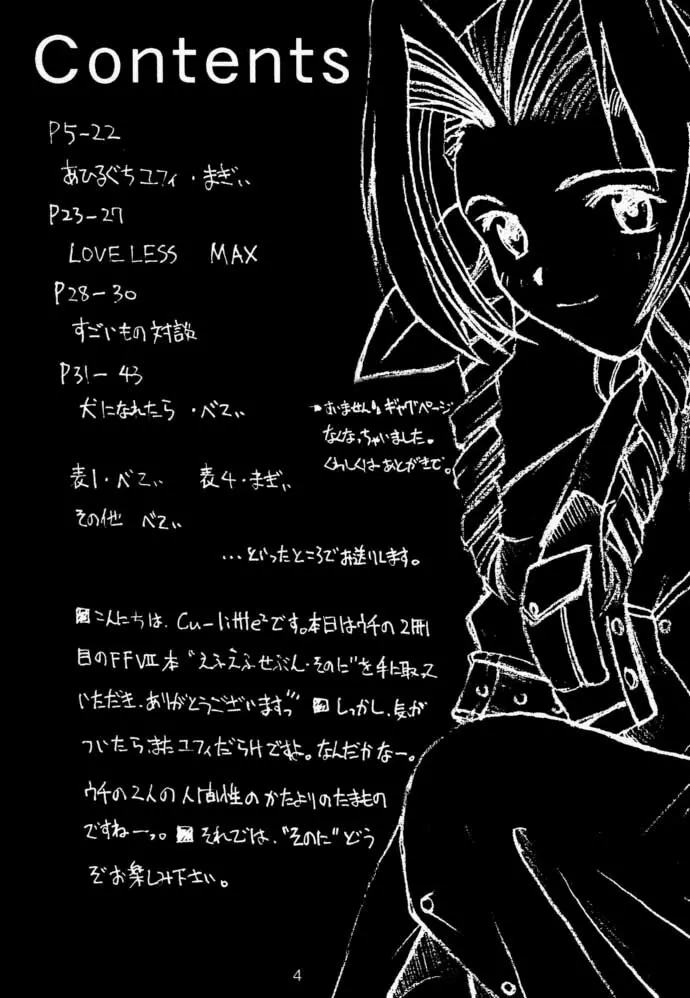 Contents
P5-22
あひるぐちユフィ・まぎぃ
P23-27
LOVELESS MAX
P28-30
すごいもの対談
P31-43
犬になれたら・べてぃ
すいません。ギャグページ
なくなっちゃいました。
くわしくはあとがきで。
表1・べてぃ 表4・まぎぃ
その他 べてぃ
…といったところでお送りします。
こんにちは、Cu-little²です。本日はウチの2冊
目のFFVII本“えふえふせぶん・そのに”を手に取って
いただき、ありがとうございますっ しっかし、気が
ついたらまたユフィだらけですよ。なんだかなー。
ウチの2人の人間性のかたよりのたまもの
ですねーっ。それでは、“そのに”どう
ぞお楽しみ下さい。
4